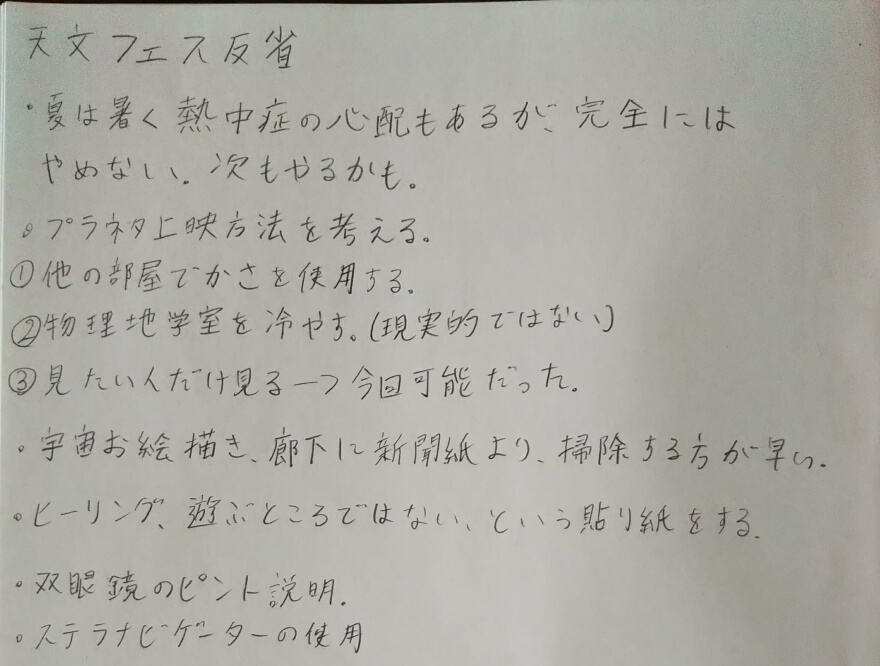 天文フェス反省
・夏は暑く熱中症の心配もあるが、完全には
やめない。次もやるかも。
・プラネタ上映方法を考える。
①他の部屋でかさを使用する。
②物理地学室を冷やす。(現実的ではない)
③見たい人だけ見る→今回可能だった。
・宇宙お絵描き、廊下に新聞紙より、掃除する方が早い。
・ヒーリング、遊ぶところではない、という貼り紙をする。
・双眼鏡のピント説明.
・ステラナビゲーターの使用